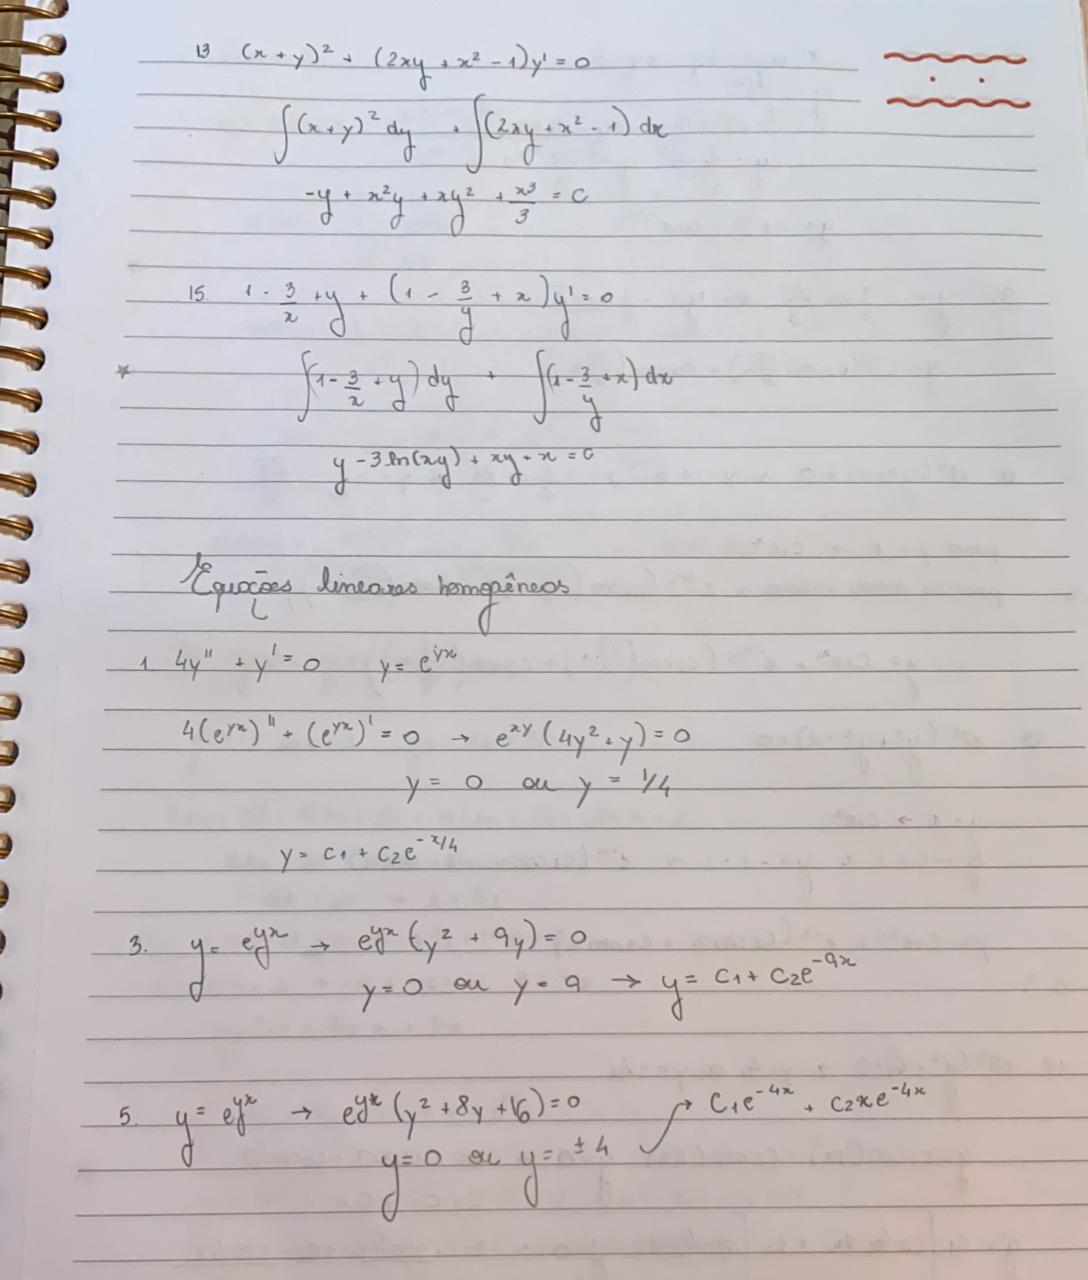 13 (x + y)² + (2xy + x² - 1)y' = 0
∫(x + y)² dy + ∫(2xy + x² - 1) dx
-y + x²y + xy² + x³/3 = C
15. 1 - 3/x + y + (1 - 3/y + x)y' = 0
* ∫(1 - 3/x + y) dy + ∫(1 - 3/y + x) dx
y - 3 ln(xy) + xy + x = C
Equações lineares homogêneos
1. 4y'' + y' = 0 y = e^γx
4(e^γx)'' + (e^γx)' = 0 → e^xγ (4γ² + γ) = 0
γ = 0 ou γ = 1/4
y = C1 + C2e^-x/4
3. y = e^yx → e^yx (y² + 9y) = 0
y = 0 ou y = 9 → y = C1 + C2e^-9x
5. y = e^yx → e^yx (y² + 8y + 16) = 0 → C1e^-4x + C2xe^-4x
y = 0 ou y = ±4